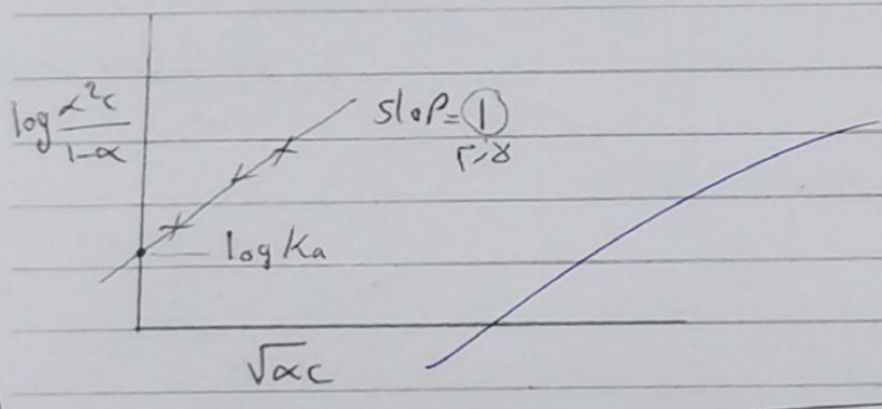 log α²c
1-α
slop = 1
log Ka
√αc